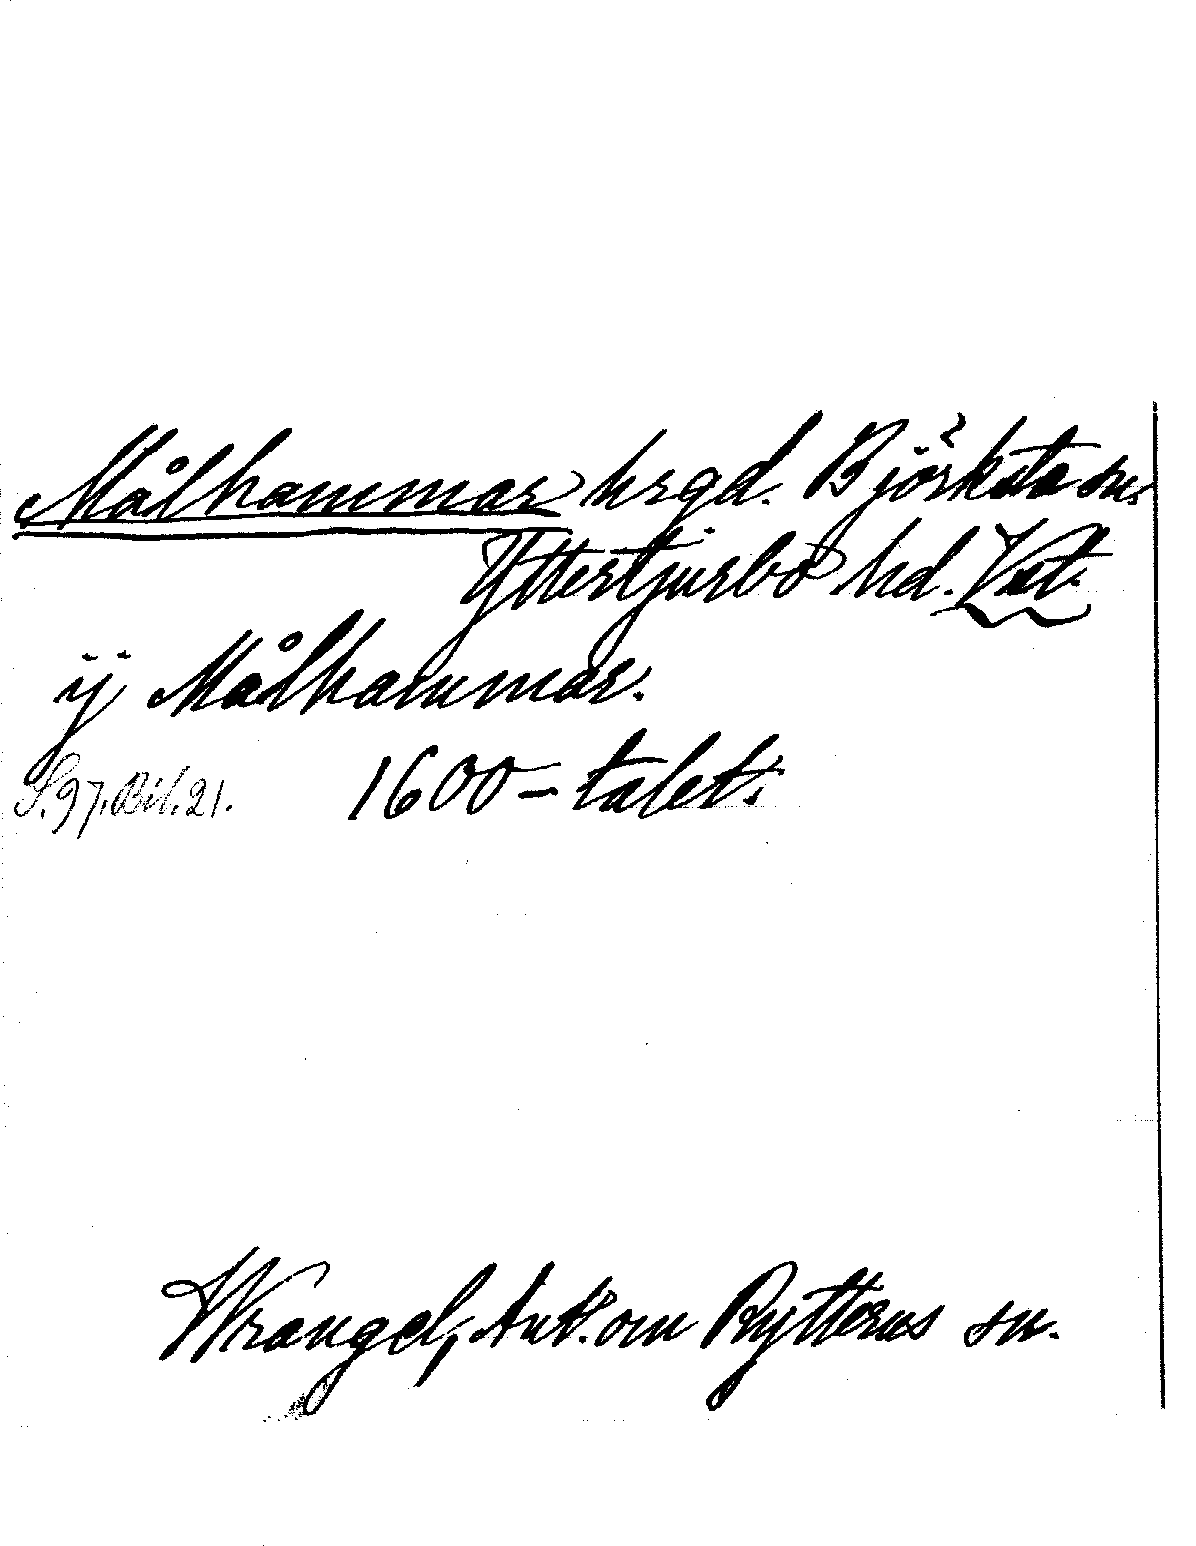 Målhammar hrgd. Björksta sn.
Yttertjurbo hd. Vst.
ij Målhammar.
S. 97. Bil. 21. 1600-talet.
Wrangel, Ant. om Rytterns sn.